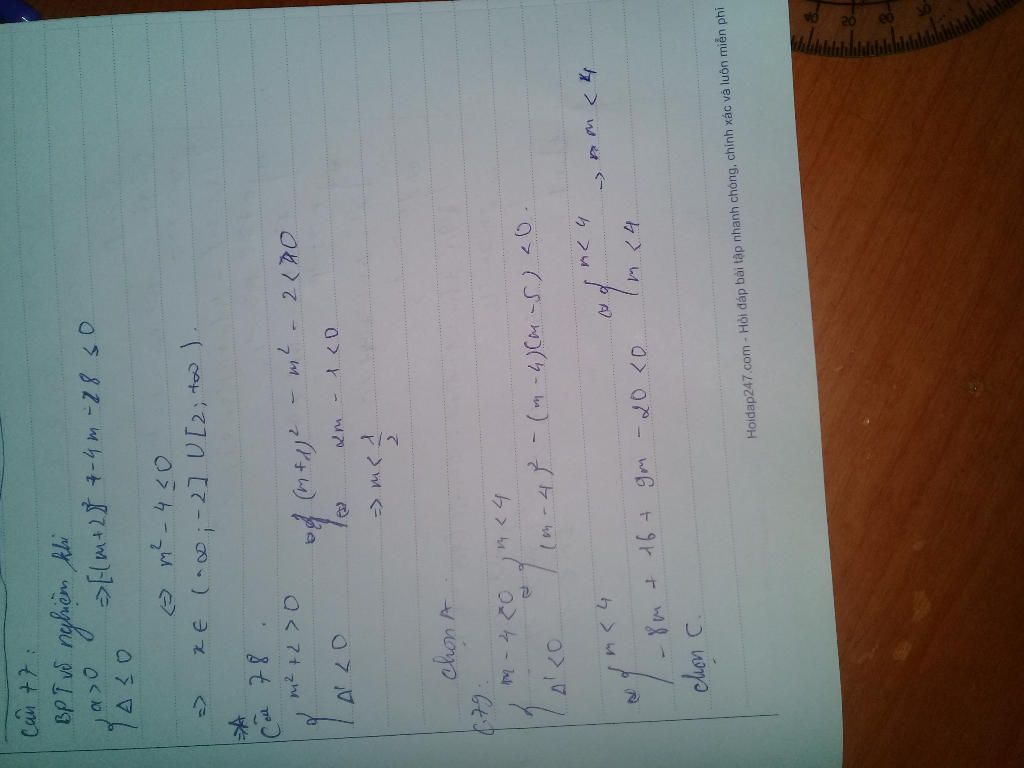 Câu 77:
BPT vô nghiệm khi
{ a > 0 => [-(m+2)]² - 4m - 8 ≤ 0
{ Δ ≤ 0
<=> m² - 4 ≤ 0
=> x ∈ (-∞; -2] ∪ [2; +∞).
=> A
Câu 78.
{ m² + 2 > 0 <=> { (m+1)² - m² - 2 < 0
{ Δ' < 0 <=> 2m - 1 < 0
=> m < 1/2
Chọn A.
C.79.
{ m - 4 < 0 <=> { m < 4
{ Δ' < 0 (m-4)² - (m-4)(m-5) < 0.
<=> { m < 4 <=> { m < 4 -> m < 4
- 8m + 16 + 9m - 20 < 0 { m < 4
Chọn C.
Hoidap247.com - Hỏi đáp bài tập nhanh chóng, chính xác và luôn miễn phí